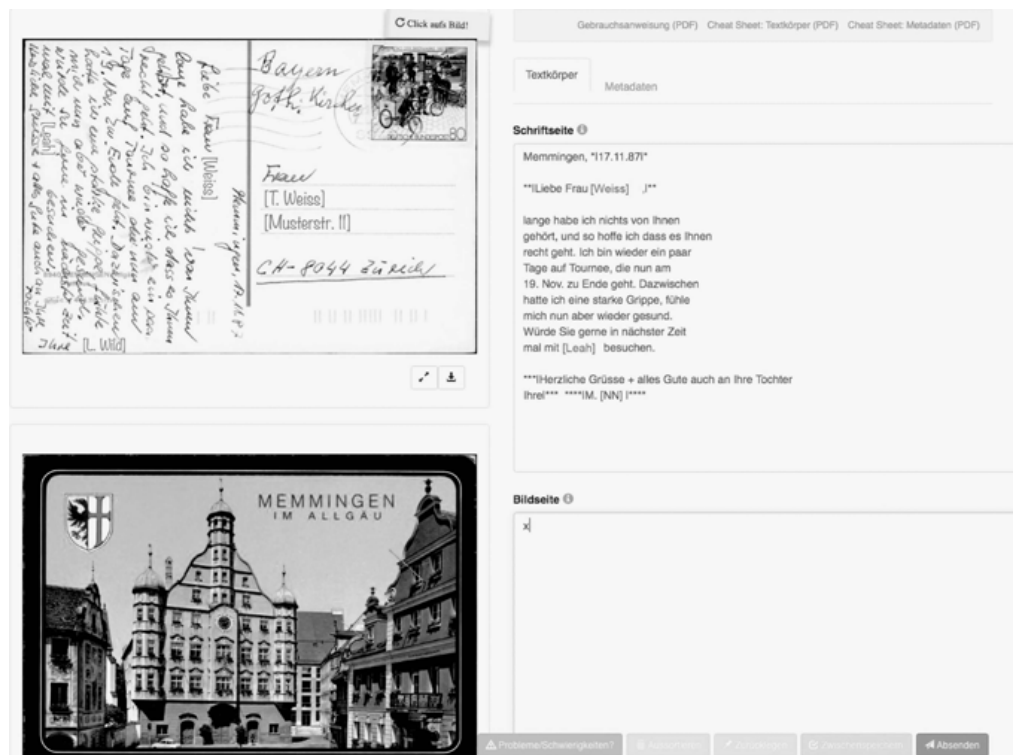 Click aufs Bild!
Bayern
Goth. Kirchen
DEUTSCHE BUNDESPOST 80
Frau
[T. Weiss]
[Musterstr. 11]
CH-8044 Zürich
Memmingen, 17.11.87
Liebe Frau [Weiss]
lange habe ich nichts von Ihnen
gehört, und so hoffe ich dass es Ihnen
recht geht. Ich bin wieder ein paar
Tage auf Tournee, die nun am
19. Nov. zu Ende geht. Dazwischen
hatte ich eine starke Grippe, fühle
mich nun aber wieder gesund.
Würde Sie gerne in nächster Zeit
mal mit [Leah] besuchen.
Herzliche Grüsse + alles Gute auch an Ihre
Tochter
Ihre [L. Wild]
MEMMINGEN
IM ALLGÄU
Gebrauchsanweisung (PDF) Cheat Sheet: Textkörper (PDF) Cheat Sheet: Metadaten (PDF)
Textkörper
Metadaten
Schriftseite
Memmingen, *|17.11.87|*
**|Liebe Frau [Weiss] ,|**
lange habe ich nichts von Ihnen
gehört, und so hoffe ich dass es Ihnen
recht geht. Ich bin wieder ein paar
Tage auf Tournee, die nun am
19. Nov. zu Ende geht. Dazwischen
hatte ich eine starke Grippe, fühle
mich nun aber wieder gesund.
Würde Sie gerne in nächster Zeit
mal mit [Leah] besuchen.
***|Herzliche Grüsse + alles Gute auch an Ihre Tochter
Ihre|*** ****|M. [NN] |****
Bildseite
x
Probleme/Schwierigkeiten?
Zwischenspeichern
Absenden